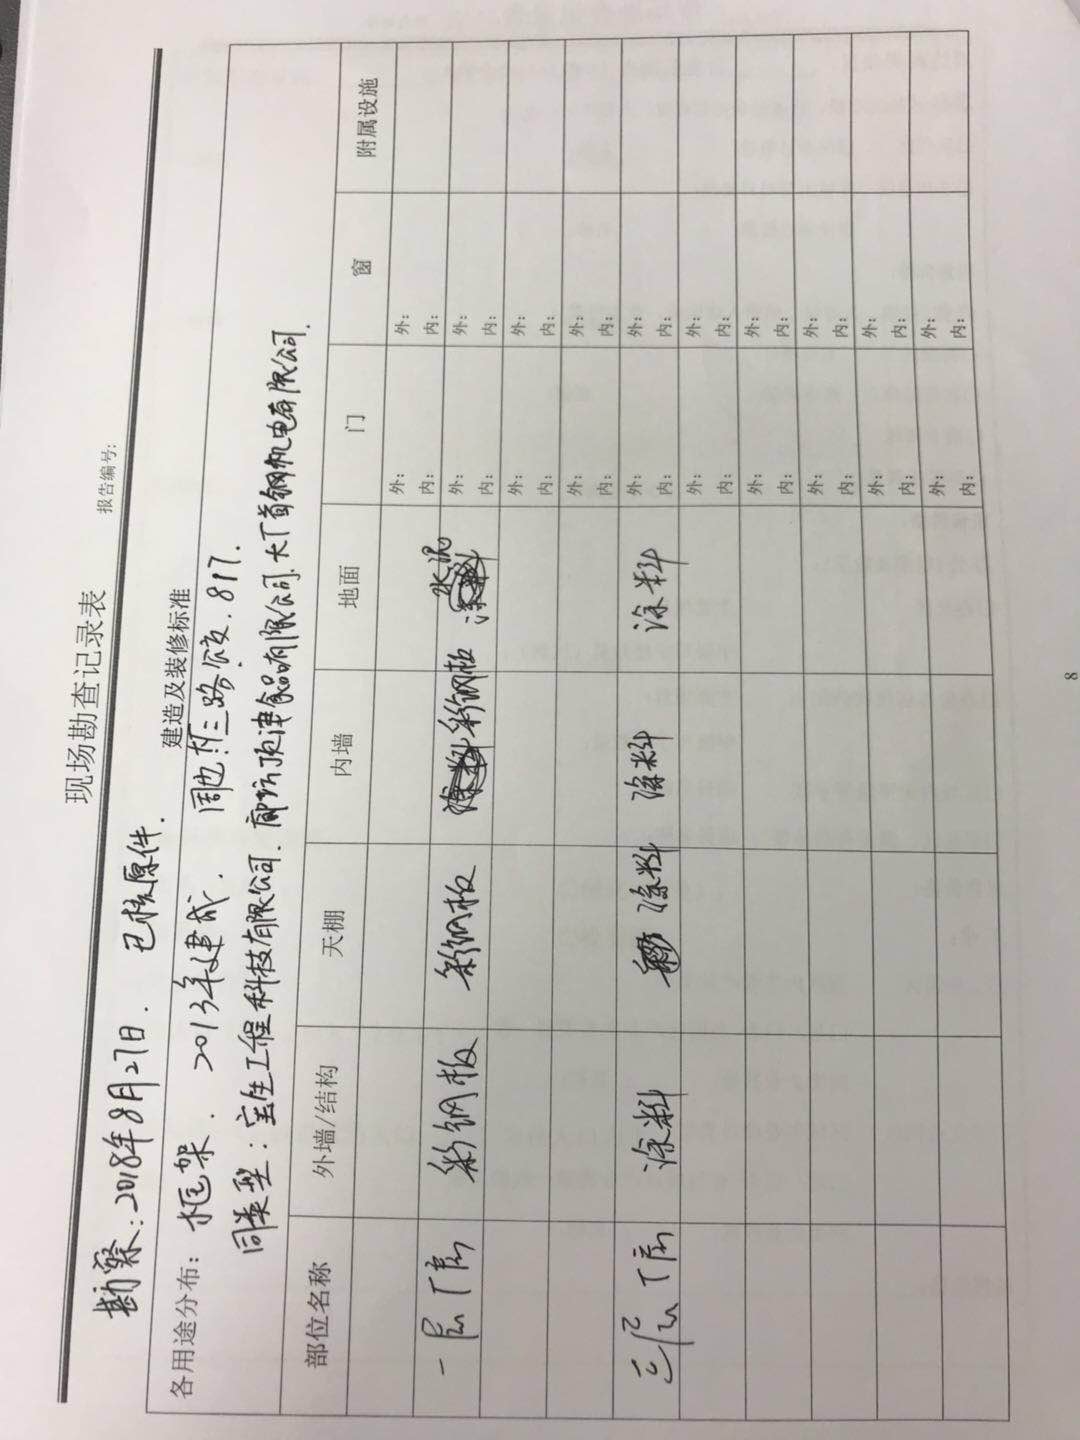 现场勘查记录表
报告编号:
勘察:2018年8月27日. 已核原件.
建造及装修标准
各用途分布: 框架. 2013年建成. 周边有三路公交. 817.
同类型: 工程科技有限公司. 廊坊顶津食品有限公司. 大厂首钢机电有限公司.
部位名称 外墙/结构 天棚 内墙 地面 门 窗 附属设施
外: 外:
内: 内:
一层厂房 彩钢板 彩钢板 彩钢板 水泥 外: 外:
内: 内:
外: 外:
内: 内:
外: 外:
内: 内:
三层厂房 涂料 涂料 涂料 涂料 外: 外:
内: 内:
外: 外:
内: 内:
外: 外:
内: 内:
外: 外:
内: 内:
外: 外:
内: 内:
外: 外:
内: 内:
8